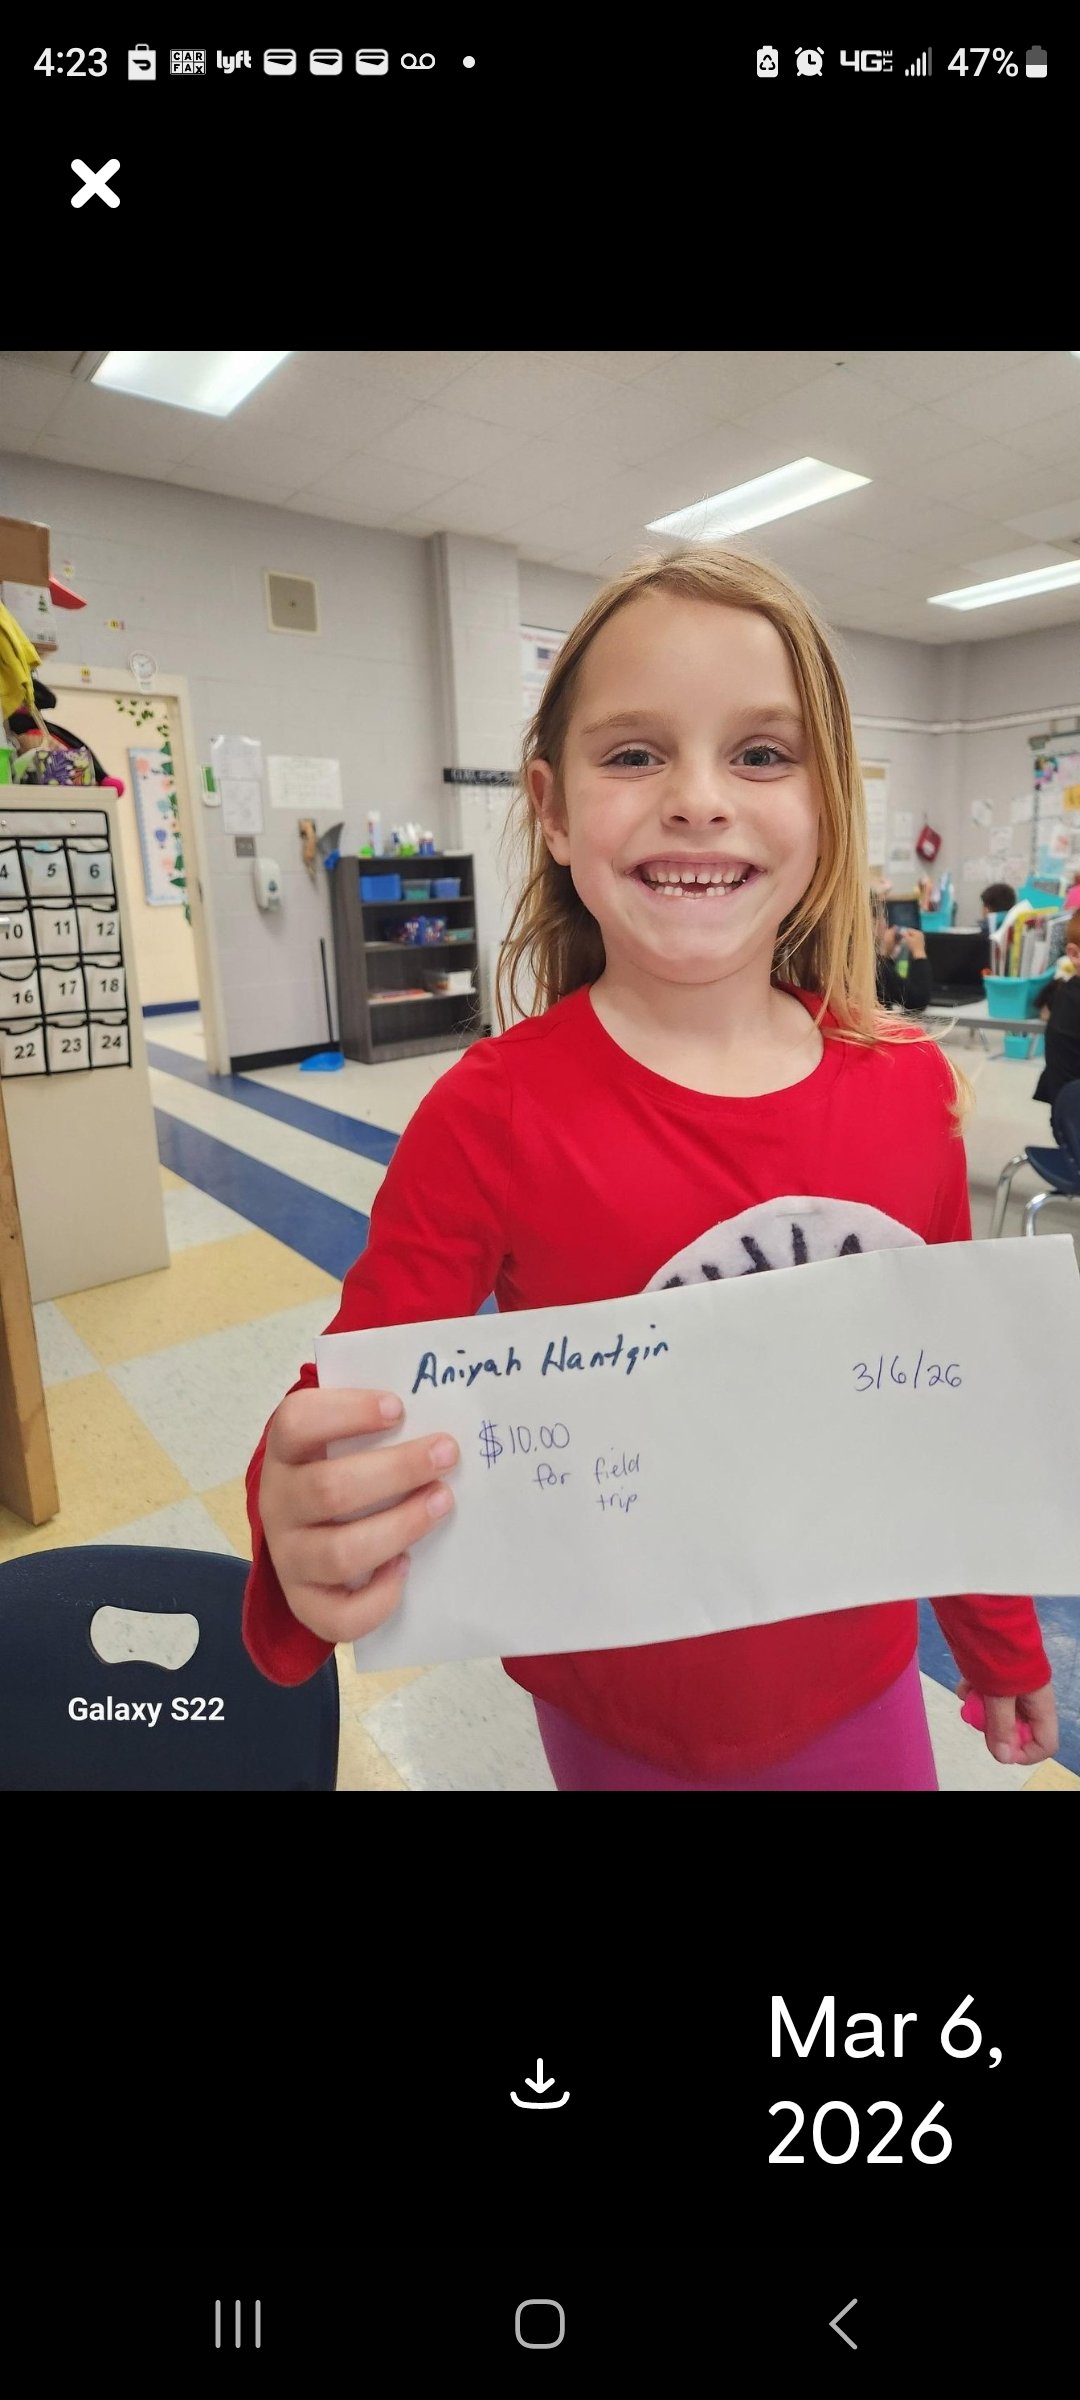 4:23
CAR FAX
lyft
4G LTE
47%
4 5 6
10 11 12
16 17 18
22 23 24
Aniyah Hantgin
3/6/26
$10.00
for field
trip
Galaxy S22
Mar 6,
2026